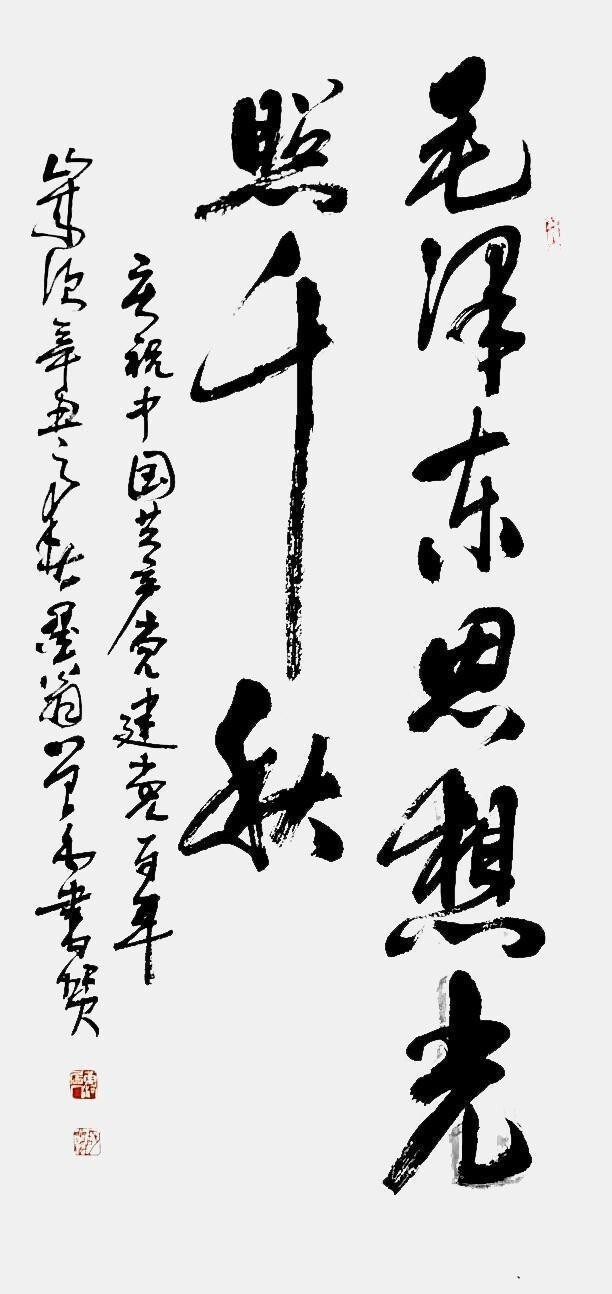 毛泽东思想光
照千秋
庆祝中国共产党建党百年
岁次辛丑之秋墨翁書贺